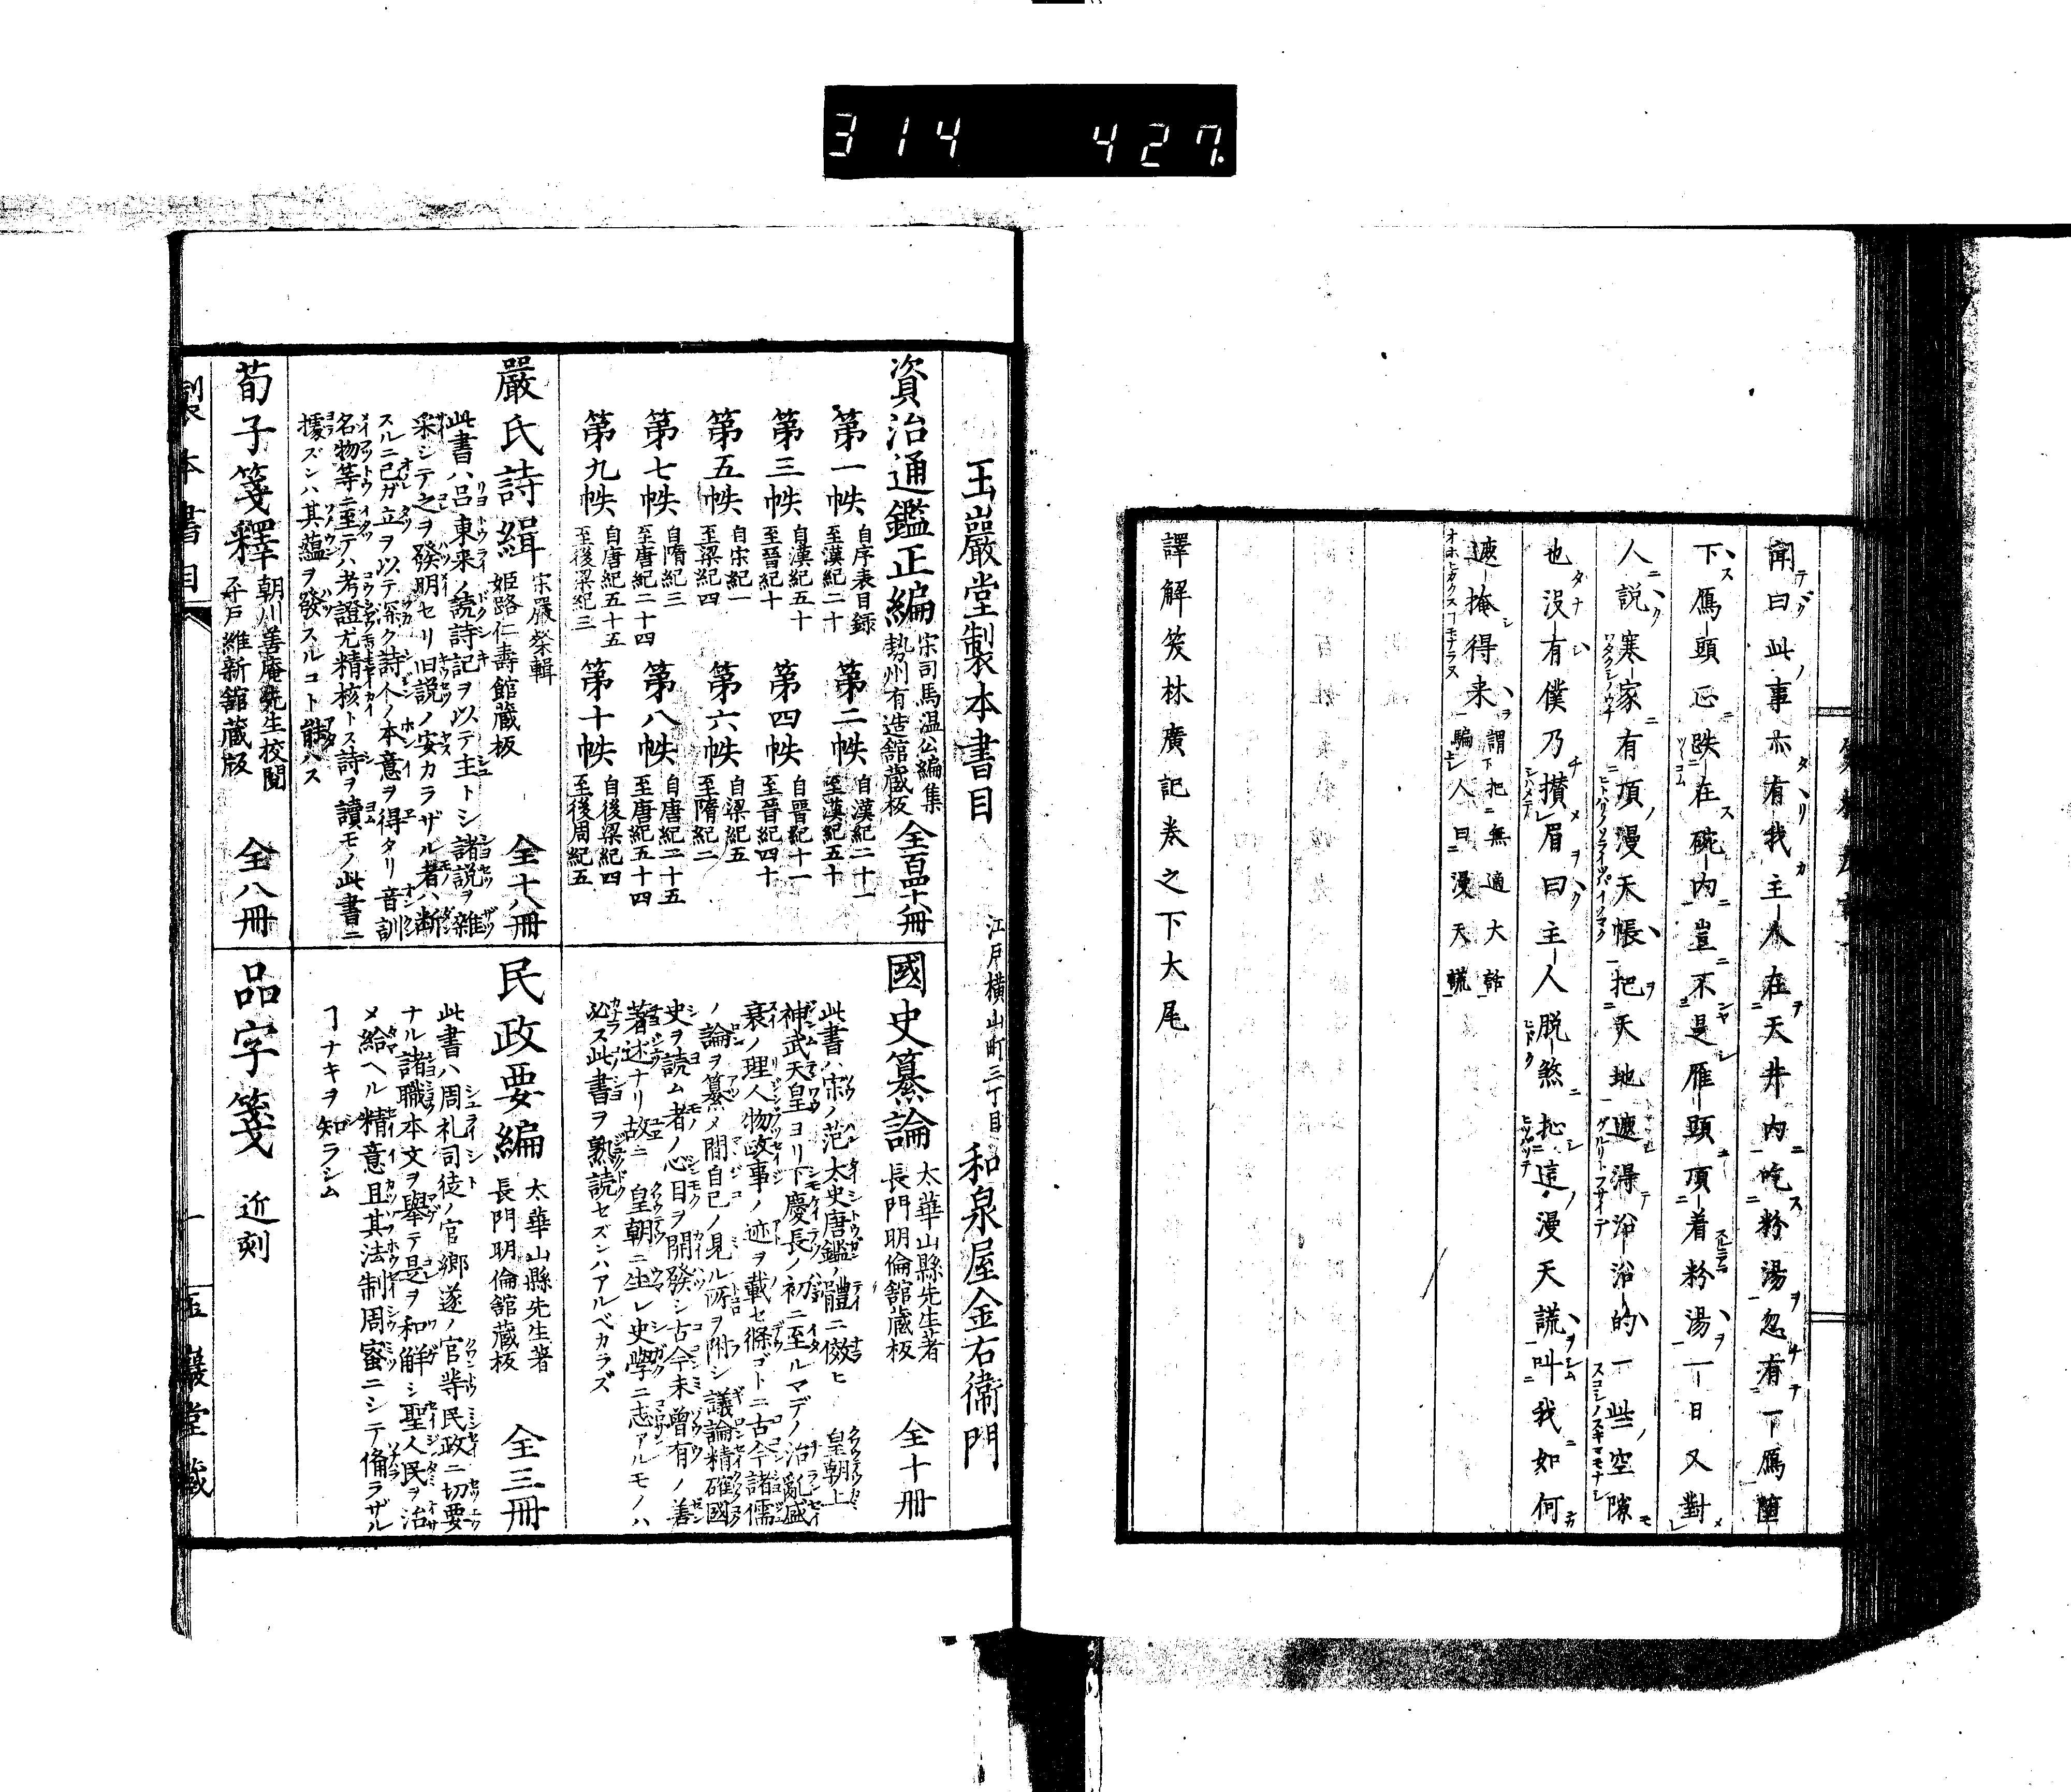 314 427
聞曰此事亦有我主人在天井内吃粉湯忽有一鴈墮
下鴈頭忘跌在碗内豈不是雁頭頂着粉湯一日又對
人説寒家有頂漫天帳把天地遮得浴浴的一些空隙
也沒有僕乃攅眉曰主人脱煞也這漫天謊叫我如何
遮掩得来 謂下把無適大話
騙人曰漫天謊
オホヒカクスヿモナラヌ
譯解笑林廣記巻之下大尾
玉巖堂製本書目 江戸横山町三丁目 和泉屋金右衛門
資治通鑑正編 宋司馬温公編集 勢州有造舘蔵板
第一帙 自序表目録 至漢紀二十
第二帙 自漢紀二十一 至漢紀五十
第三帙 自漢紀五十 至晉紀十
第四帙 自晉紀十一 至晉紀四十
第五帙 自宋紀一 至梁紀四
第六帙 自梁紀五 至隋紀二
第七帙 自隋紀三 至唐紀二十四
第八帙 自唐紀二十五 至唐紀五十四
第九帙 自唐紀五十五 至後梁紀三
第十帙 自後梁紀四 至後周紀五
國史纂論 太華山縣先生著 長門明倫舘蔵板 全十册
此書ハ宋ノ范太史唐鑑ノ體ニ倣ヒ 皇朝上
神武天皇ヨリ下慶長ノ初ニ至ルマデノ治亂盛
衰ノ理人物政事ノ迹ヲ載セ條ゴトニ古今諸儒
ノ論ヲ纂メ間自已ノ見ル所ヲ附シ議論精確國
史ヲ読ム者ノ心目ヲ開發シ古今未曽有ノ善
著述ナリ故ニ 皇朝ニ生レ史學ニ志アルモノハ
必ス此書ヲ熟読セズンハアルベカラズ
嚴氏詩緝 宋嚴粲輯 姫路仁壽館蔵板 全十八册
此書ハ呂東来ノ読詩記ヲ以テ主トシ諸説ヲ雑
采シテ之ヲ發明セリ旧説ノ安カラザル者ハ断
スルニ己ガ立ヲ以テ深ク詩人ノ本意ヲ得タリ音訓
名物等ニ至テハ考證尤精核トス詩ヲ讀モノ此書ニ
據ズンハ其蘊ヲ發スルコト能ハス
民政要編 太華山縣先生著 長門明倫舘蔵板 全三册
此書ハ周礼司徒ノ官郷遂ノ官等民政ニ切要
ナル諸職本文ヲ舉テ是ヲ和解シ聖人民ヲ治
メ給ヘル精意且其法制周蜜ニシテ備ラザル
ヿナキヲ知ラシム
荀子箋釋 朝川善庵先生校閲 平戸維新舘蔵版 全八册
品字箋 近刻
製本書目 一 玉巖堂藏